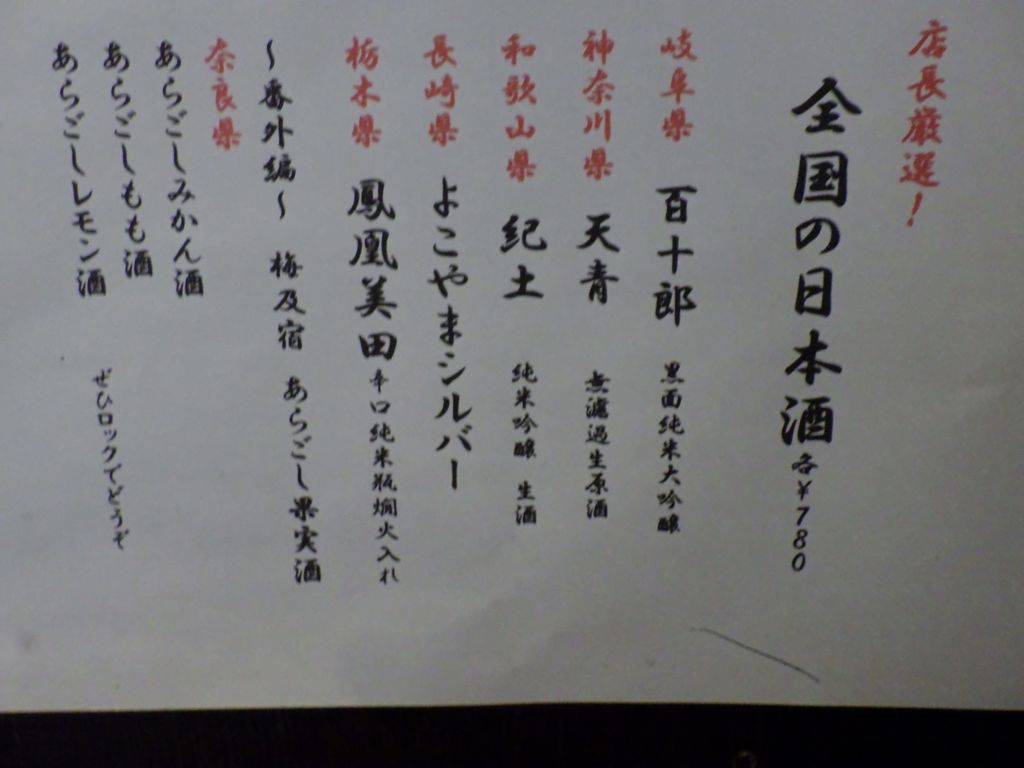 店長厳選！
全国の日本酒 各￥780
岐阜県 百十郎 黒面純米大吟醸
神奈川県 天青 無濾過生原酒
和歌山県 紀土 純米吟醸 生酒
長崎県 よこやまシルバー
栃木県 鳳凰美田 辛口純米瓶燗火入れ
～番外編～ 梅及宿 あらごし果実酒
奈良県
あらごしみかん酒
あらごしもも酒
あらごしレモン酒
ぜひロックでどうぞ